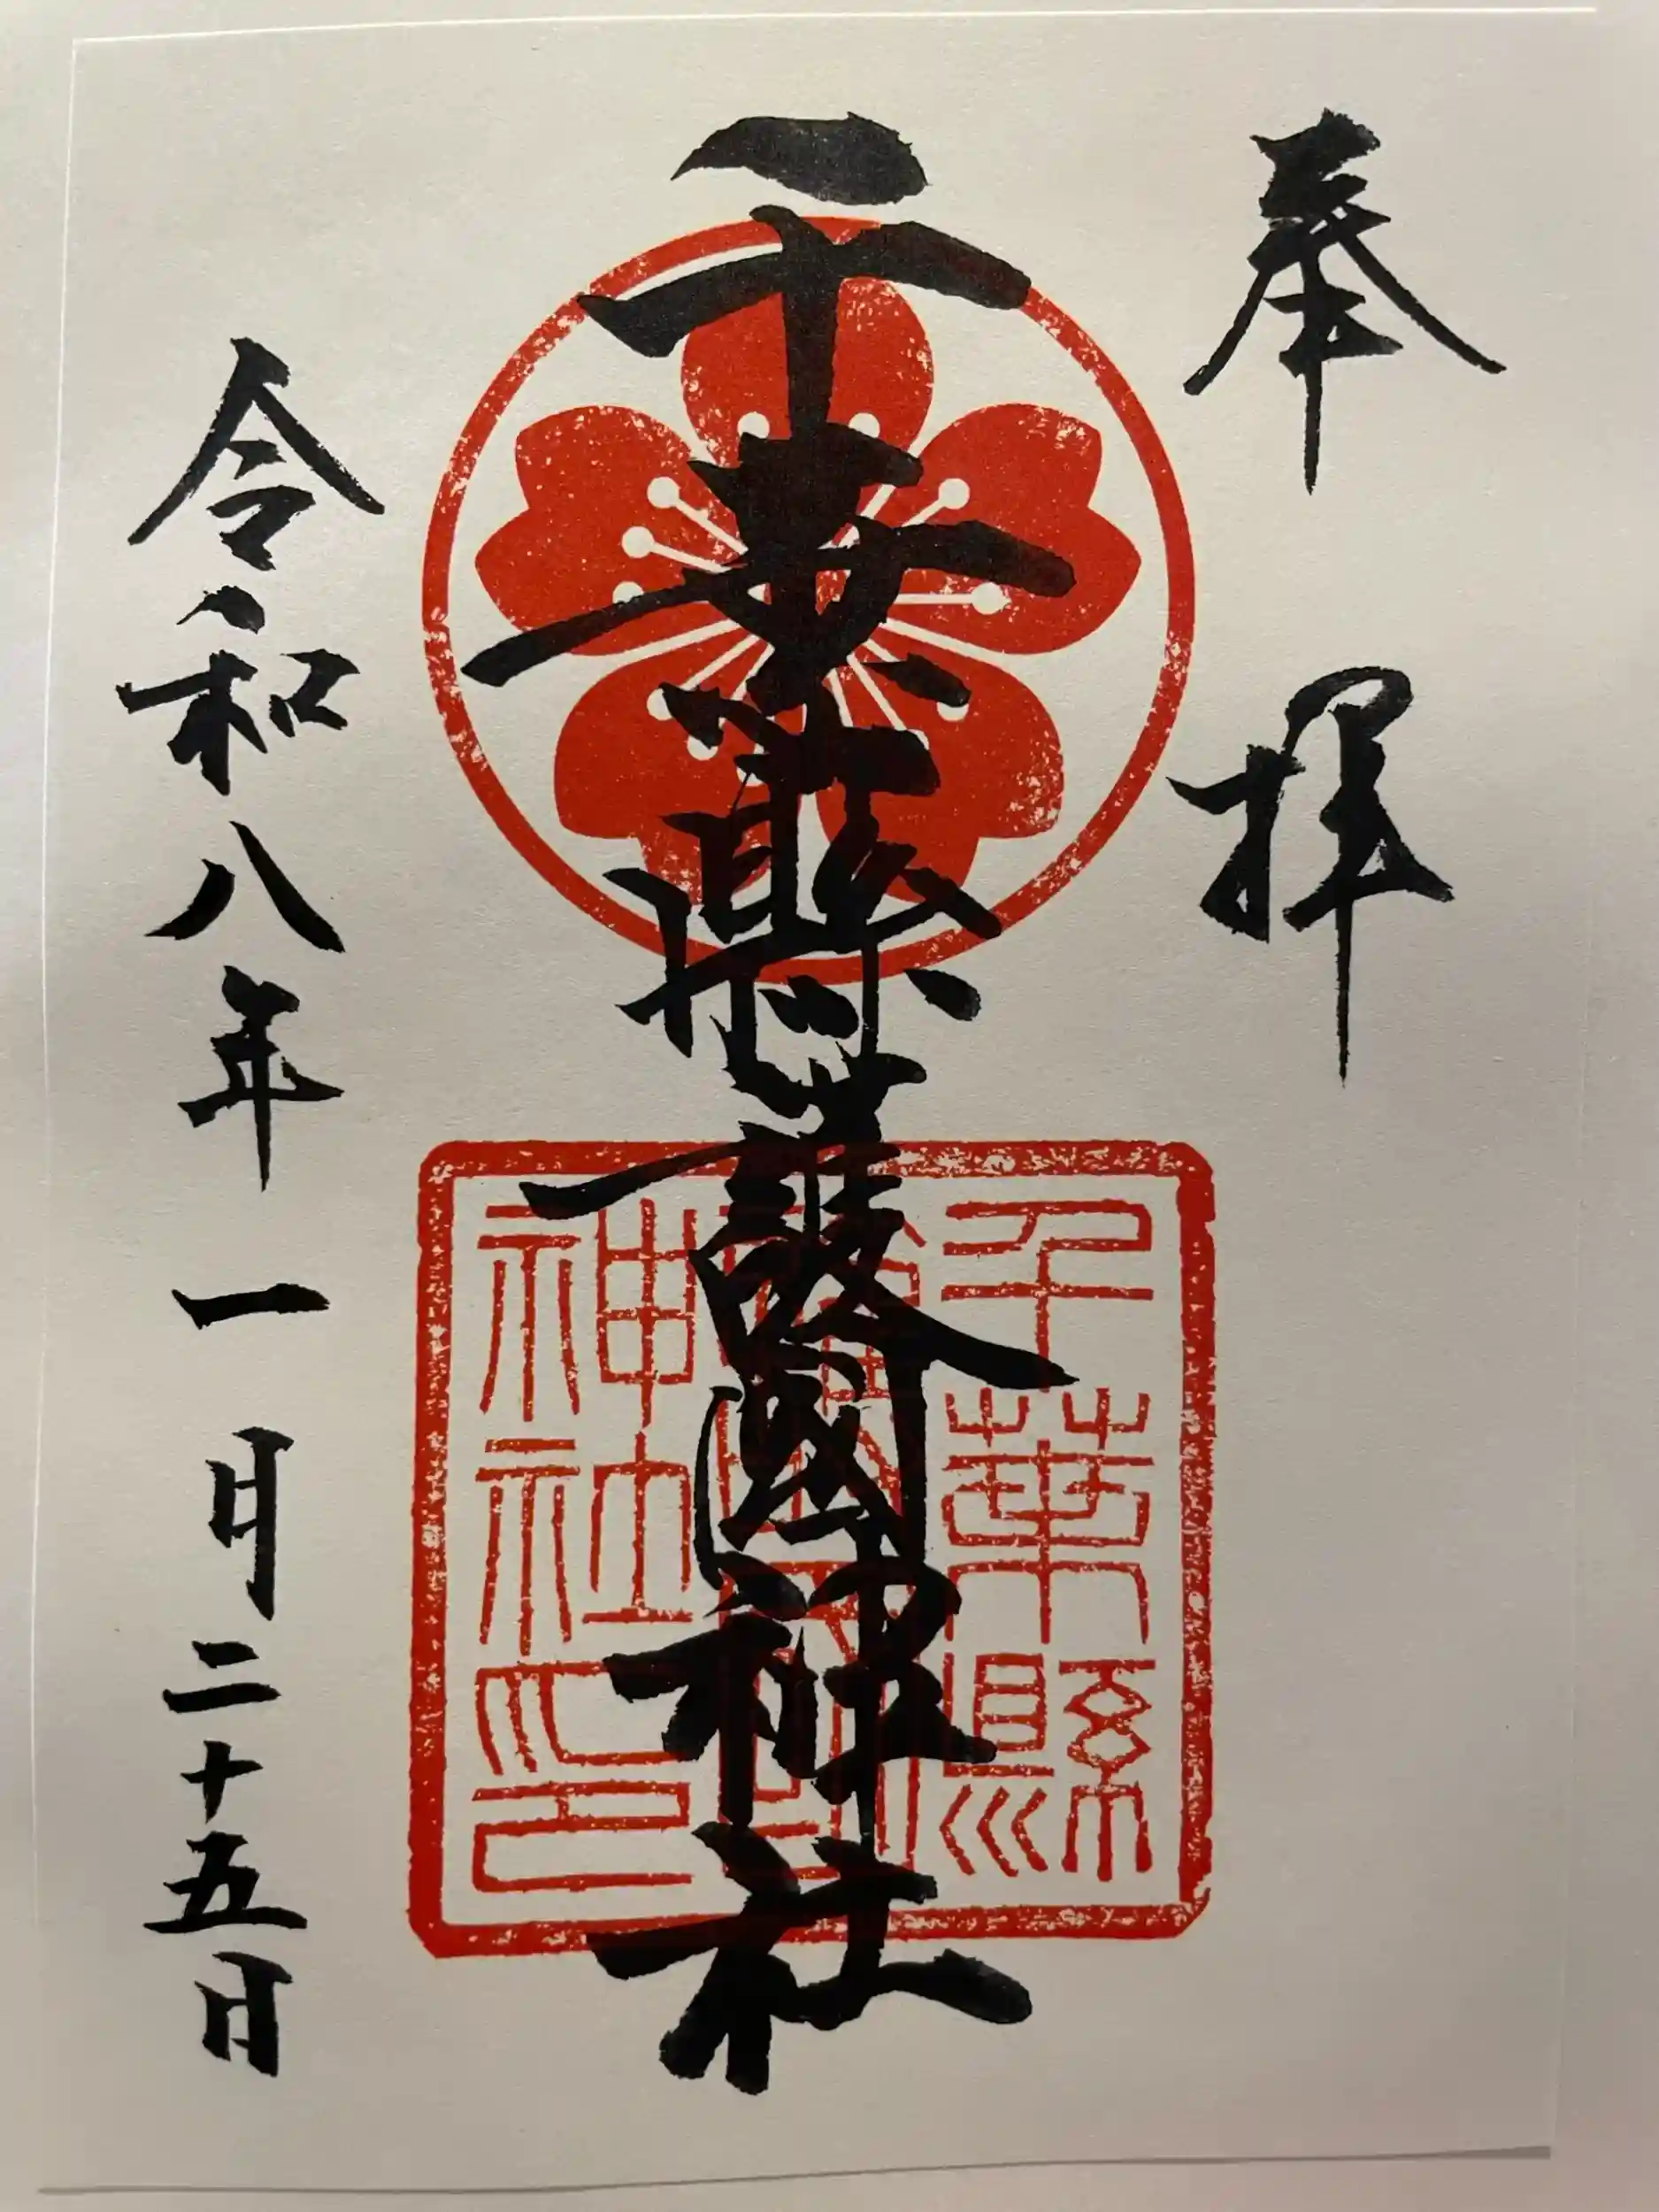 奉拝
千葉縣護國神社
千葉縣
護國
神社印
令和八年一月二十五日